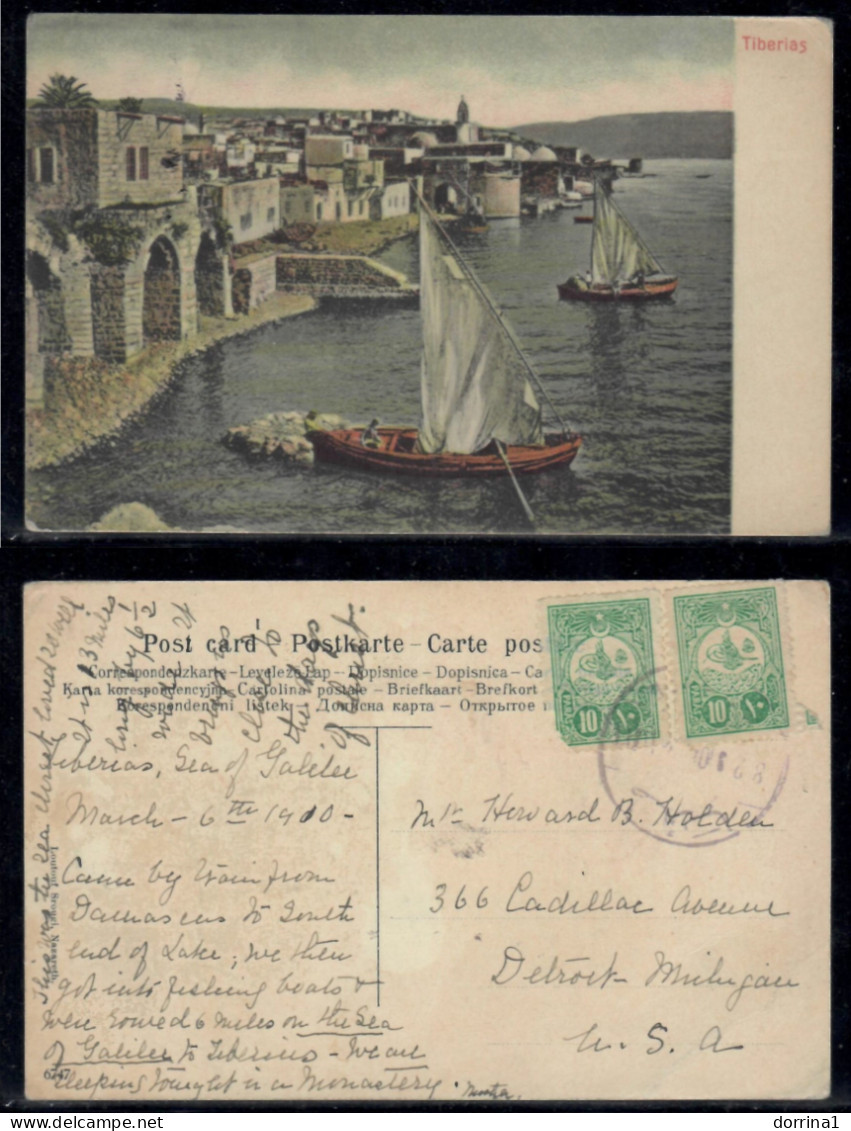 Tiberias
Post card – Postkarte – Carte pos
Correspondenzkarte – Levelező-Lap – Dopisnice – Dopisnica – Ca
Karta korespondencyjna Cartolina postale – Briefkaart – Brefkort
Korespondenčni listek – Дописна карта – Открытое
10
10
Tiberias, Sea of Galilee
March – 6th 1910 –
Came by train from
Damascus to South
end of Lake; we then
got into fishing boats &
were rowed 6 miles on the Sea
of Galilee to Tiberias – We are
sleeping tonight in a Monastery.
Mother
This was the Sea Christ loved so well
It is 13 miles
long by 6 1/2
wide
close to
the
of
Mr Howard B. Holden
366 Cadillac Avenue
Detroit – Michigan
U. S. A
6747
dorrina1